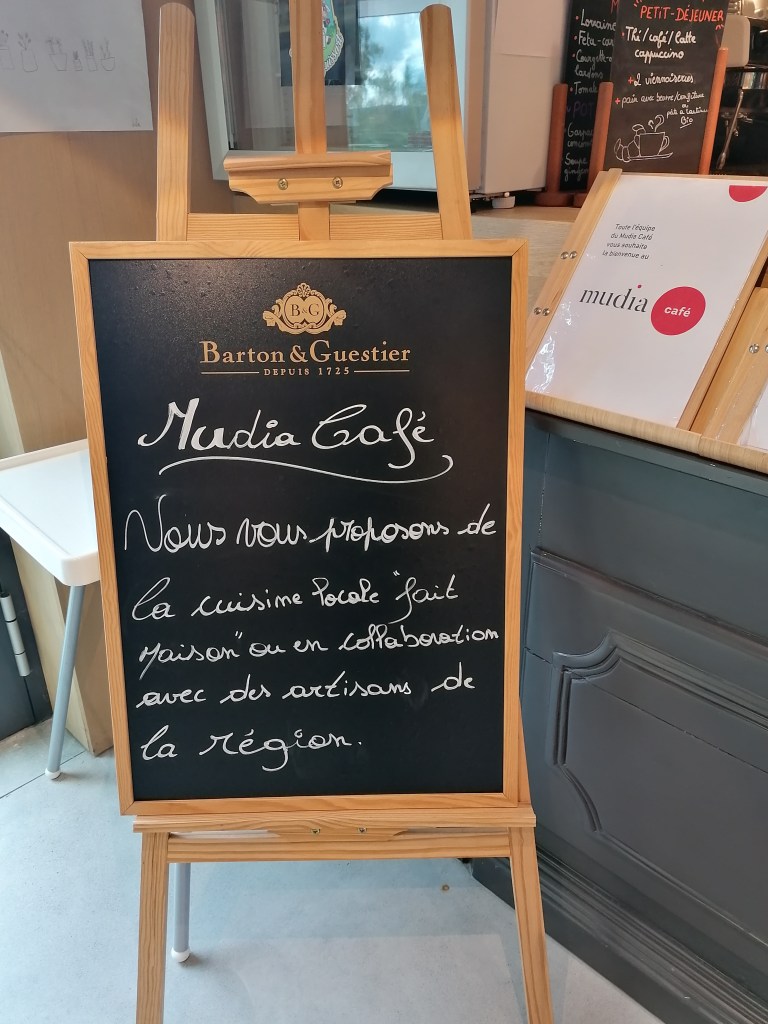 B&G
Barton & Guestier
DEPUIS 1725
Mudia Café
Nous vous proposons de
la cuisine locale "fait
Maison" ou en collaboration
avec des artisans de
la région.
Toute l'équipe
du Mudia Café
vous souhaite
la bienvenue au
mudia café
"PETIT-DÉJEUNER"
Thé/café/Latte
cappuccino
+2 viennoiseries
+pain avec beurre/confiture
ou
pâte à tartiner
Bio
Lorraine
Feta-
Courgette-
Tomate